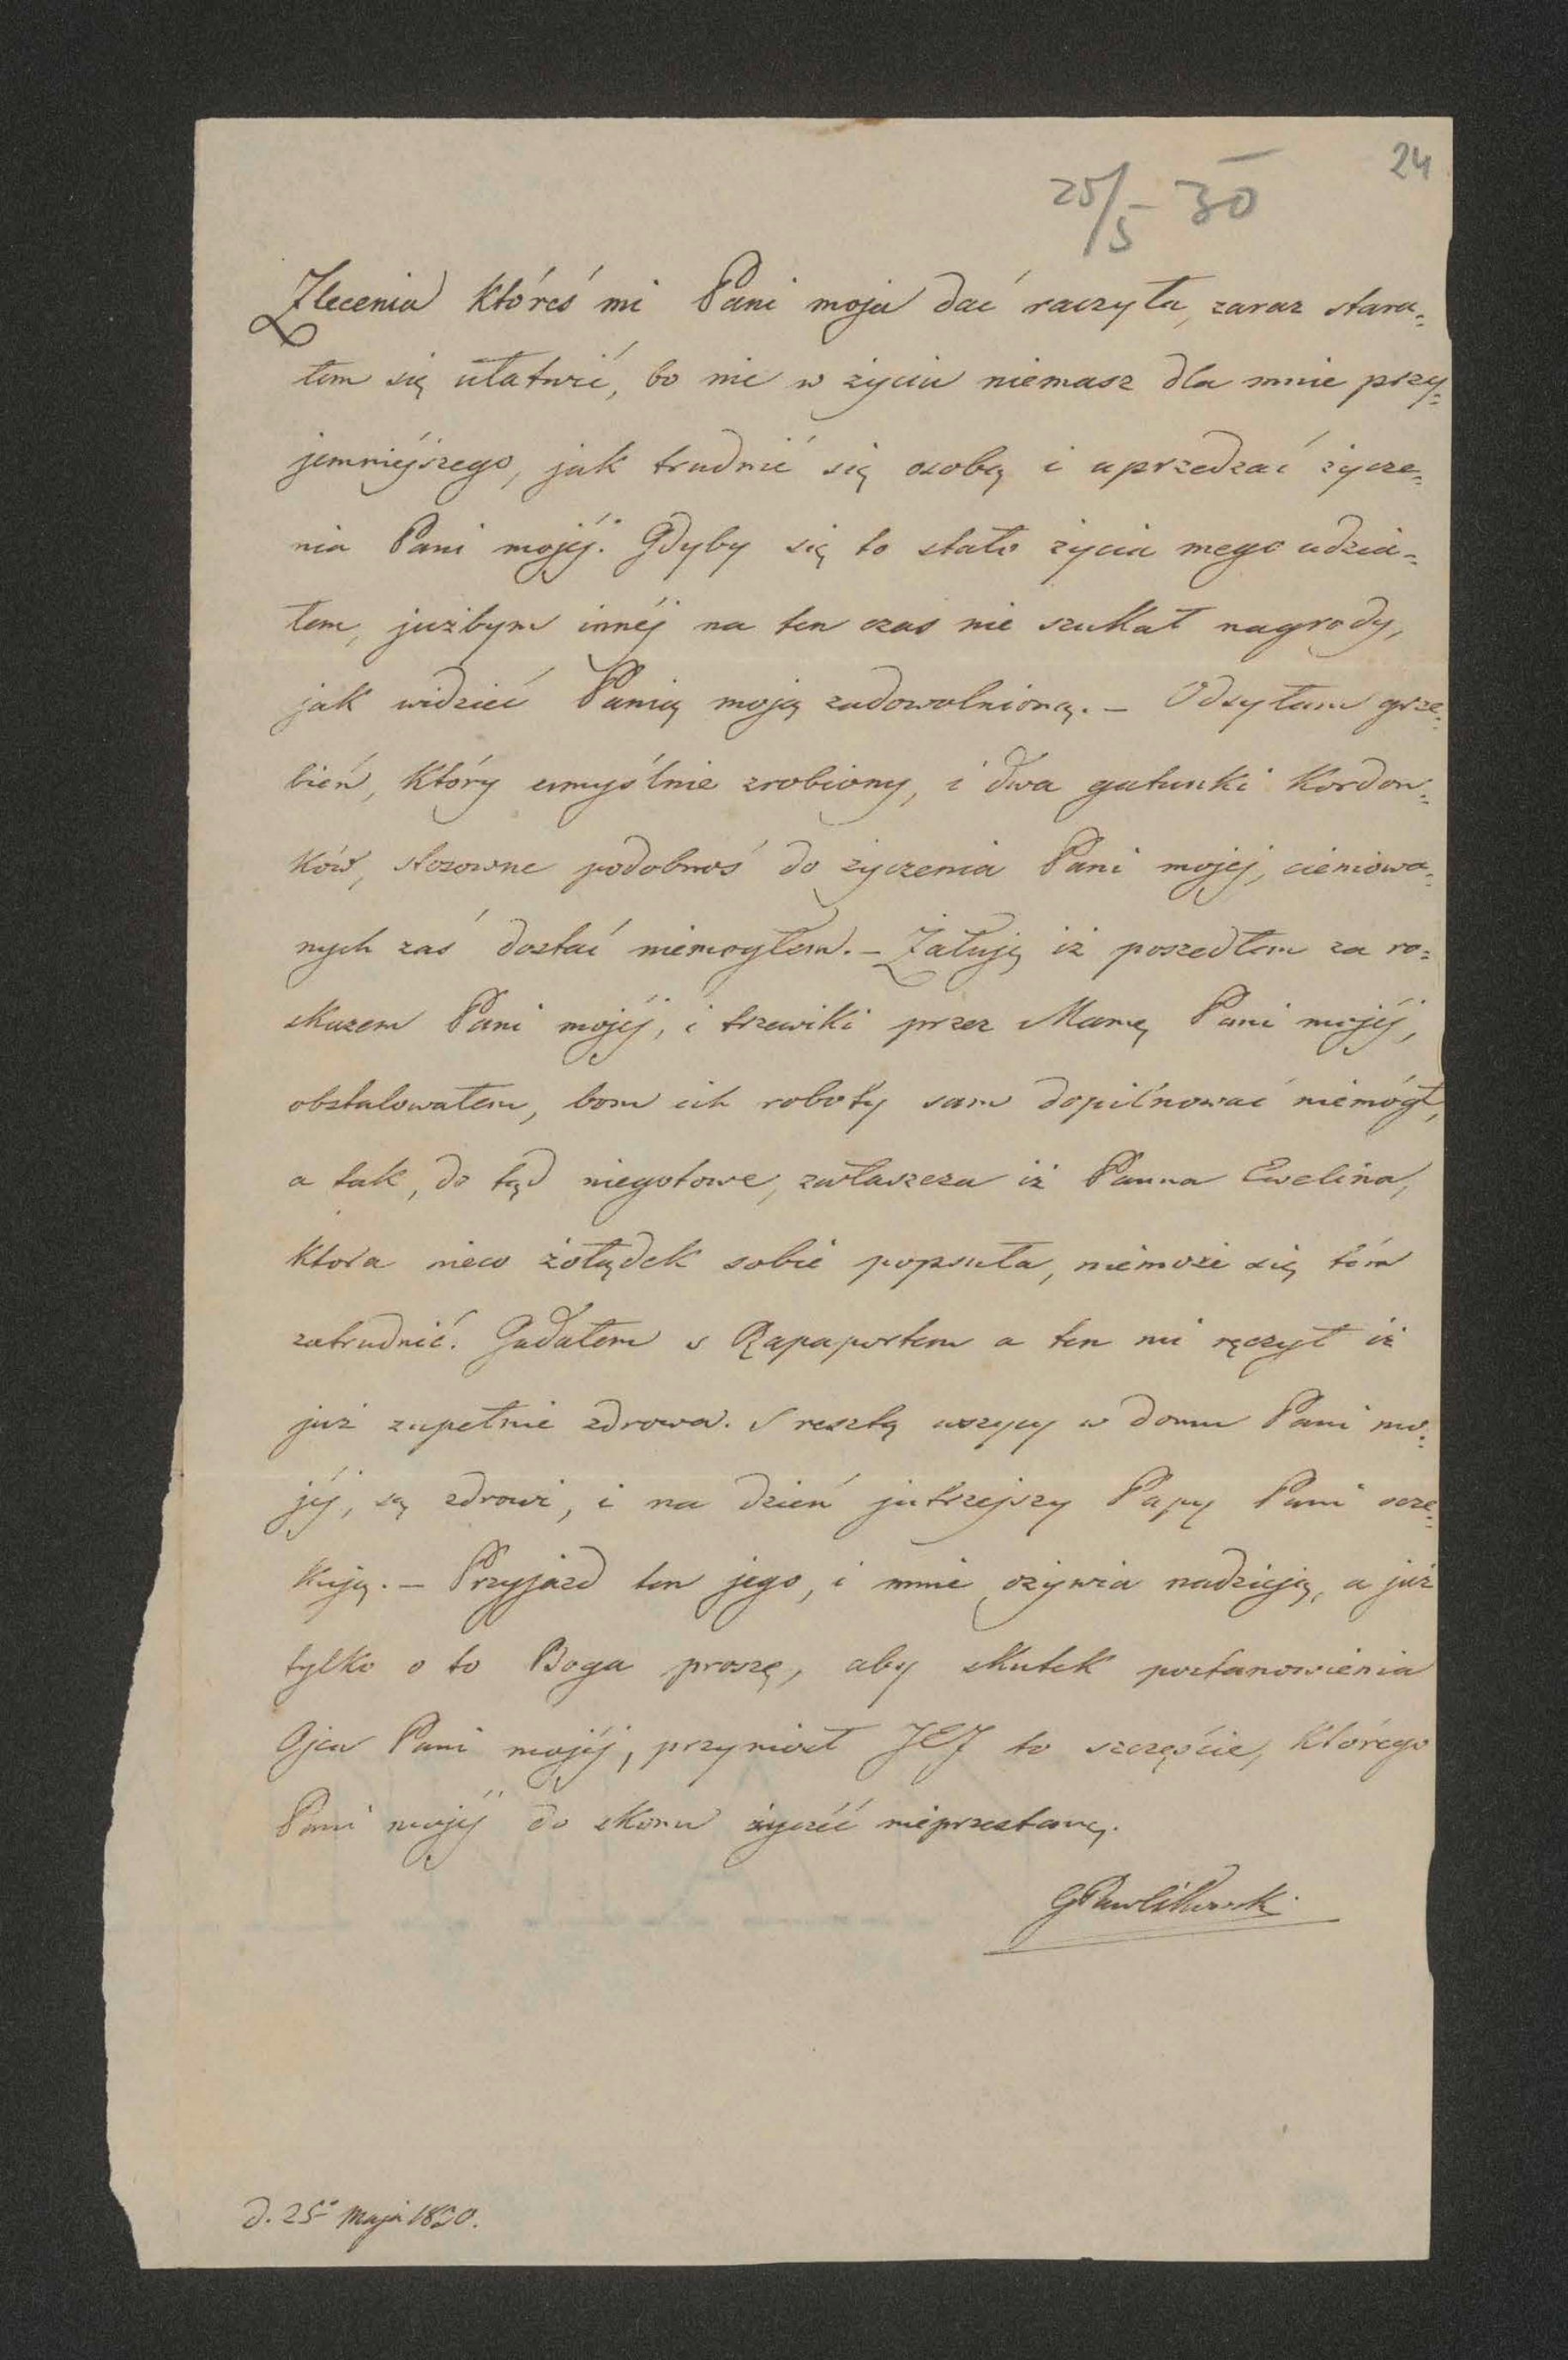 24
25/5 - 30
Zlecenia któreś mi Pani moja dać raczyła, zaraz stara=
łem się ułatwić, bo nic w życiu niemasz dla mnie przy=
jemniejszego, jak trudnić się osobą i uprzedzać życze=
nia Pani mojéj. Gdyby się to stało życia mego udzia=
łem, jużbym innéj na ten czas nie szukał nagrody,
jak widzieć Panią moją zadowolnioną. — Odsyłam grze=
bień, który umyślnie zrobiony, i dwa gatunki Kordon=
ków, stosowne podobnoś do życzenia Pani mojej, cieniowa=
nych zaś dostać niemogłem. — Żałuję iż poszedłem za ro=
skazem Pani mojéj, i trzewiki przez Mamę Pani mojéj,
obstalowałem, bom ich roboty sam dopilnować niemógł,
a tak, do tąd niegotowe, zwłaszcza iż Panna Ewelina,
ktora nieco żołądek sobie popsuła, niemoże się tém
zatrudnić. Gadałem s Rapaportem a ten mi ręczył iż
już zupełnie zdrowa. S resztą wszyscy w domu Pani mo=
jéj, są zdrowi, i na dzień jutrzejszy Papy Pani ocze=
kują. — Przyjazd ten jego, i mnie ożywia nadzieją, a już
tylko o to Boga proszę, aby skutek postanowienia
Ojca Pani mojéj, przyniosł JEJ to szczęście, którego
Pani mojéj do skonu życzéć nieprzestanę.
GPawlikowski
d. 25º Maja 1830.